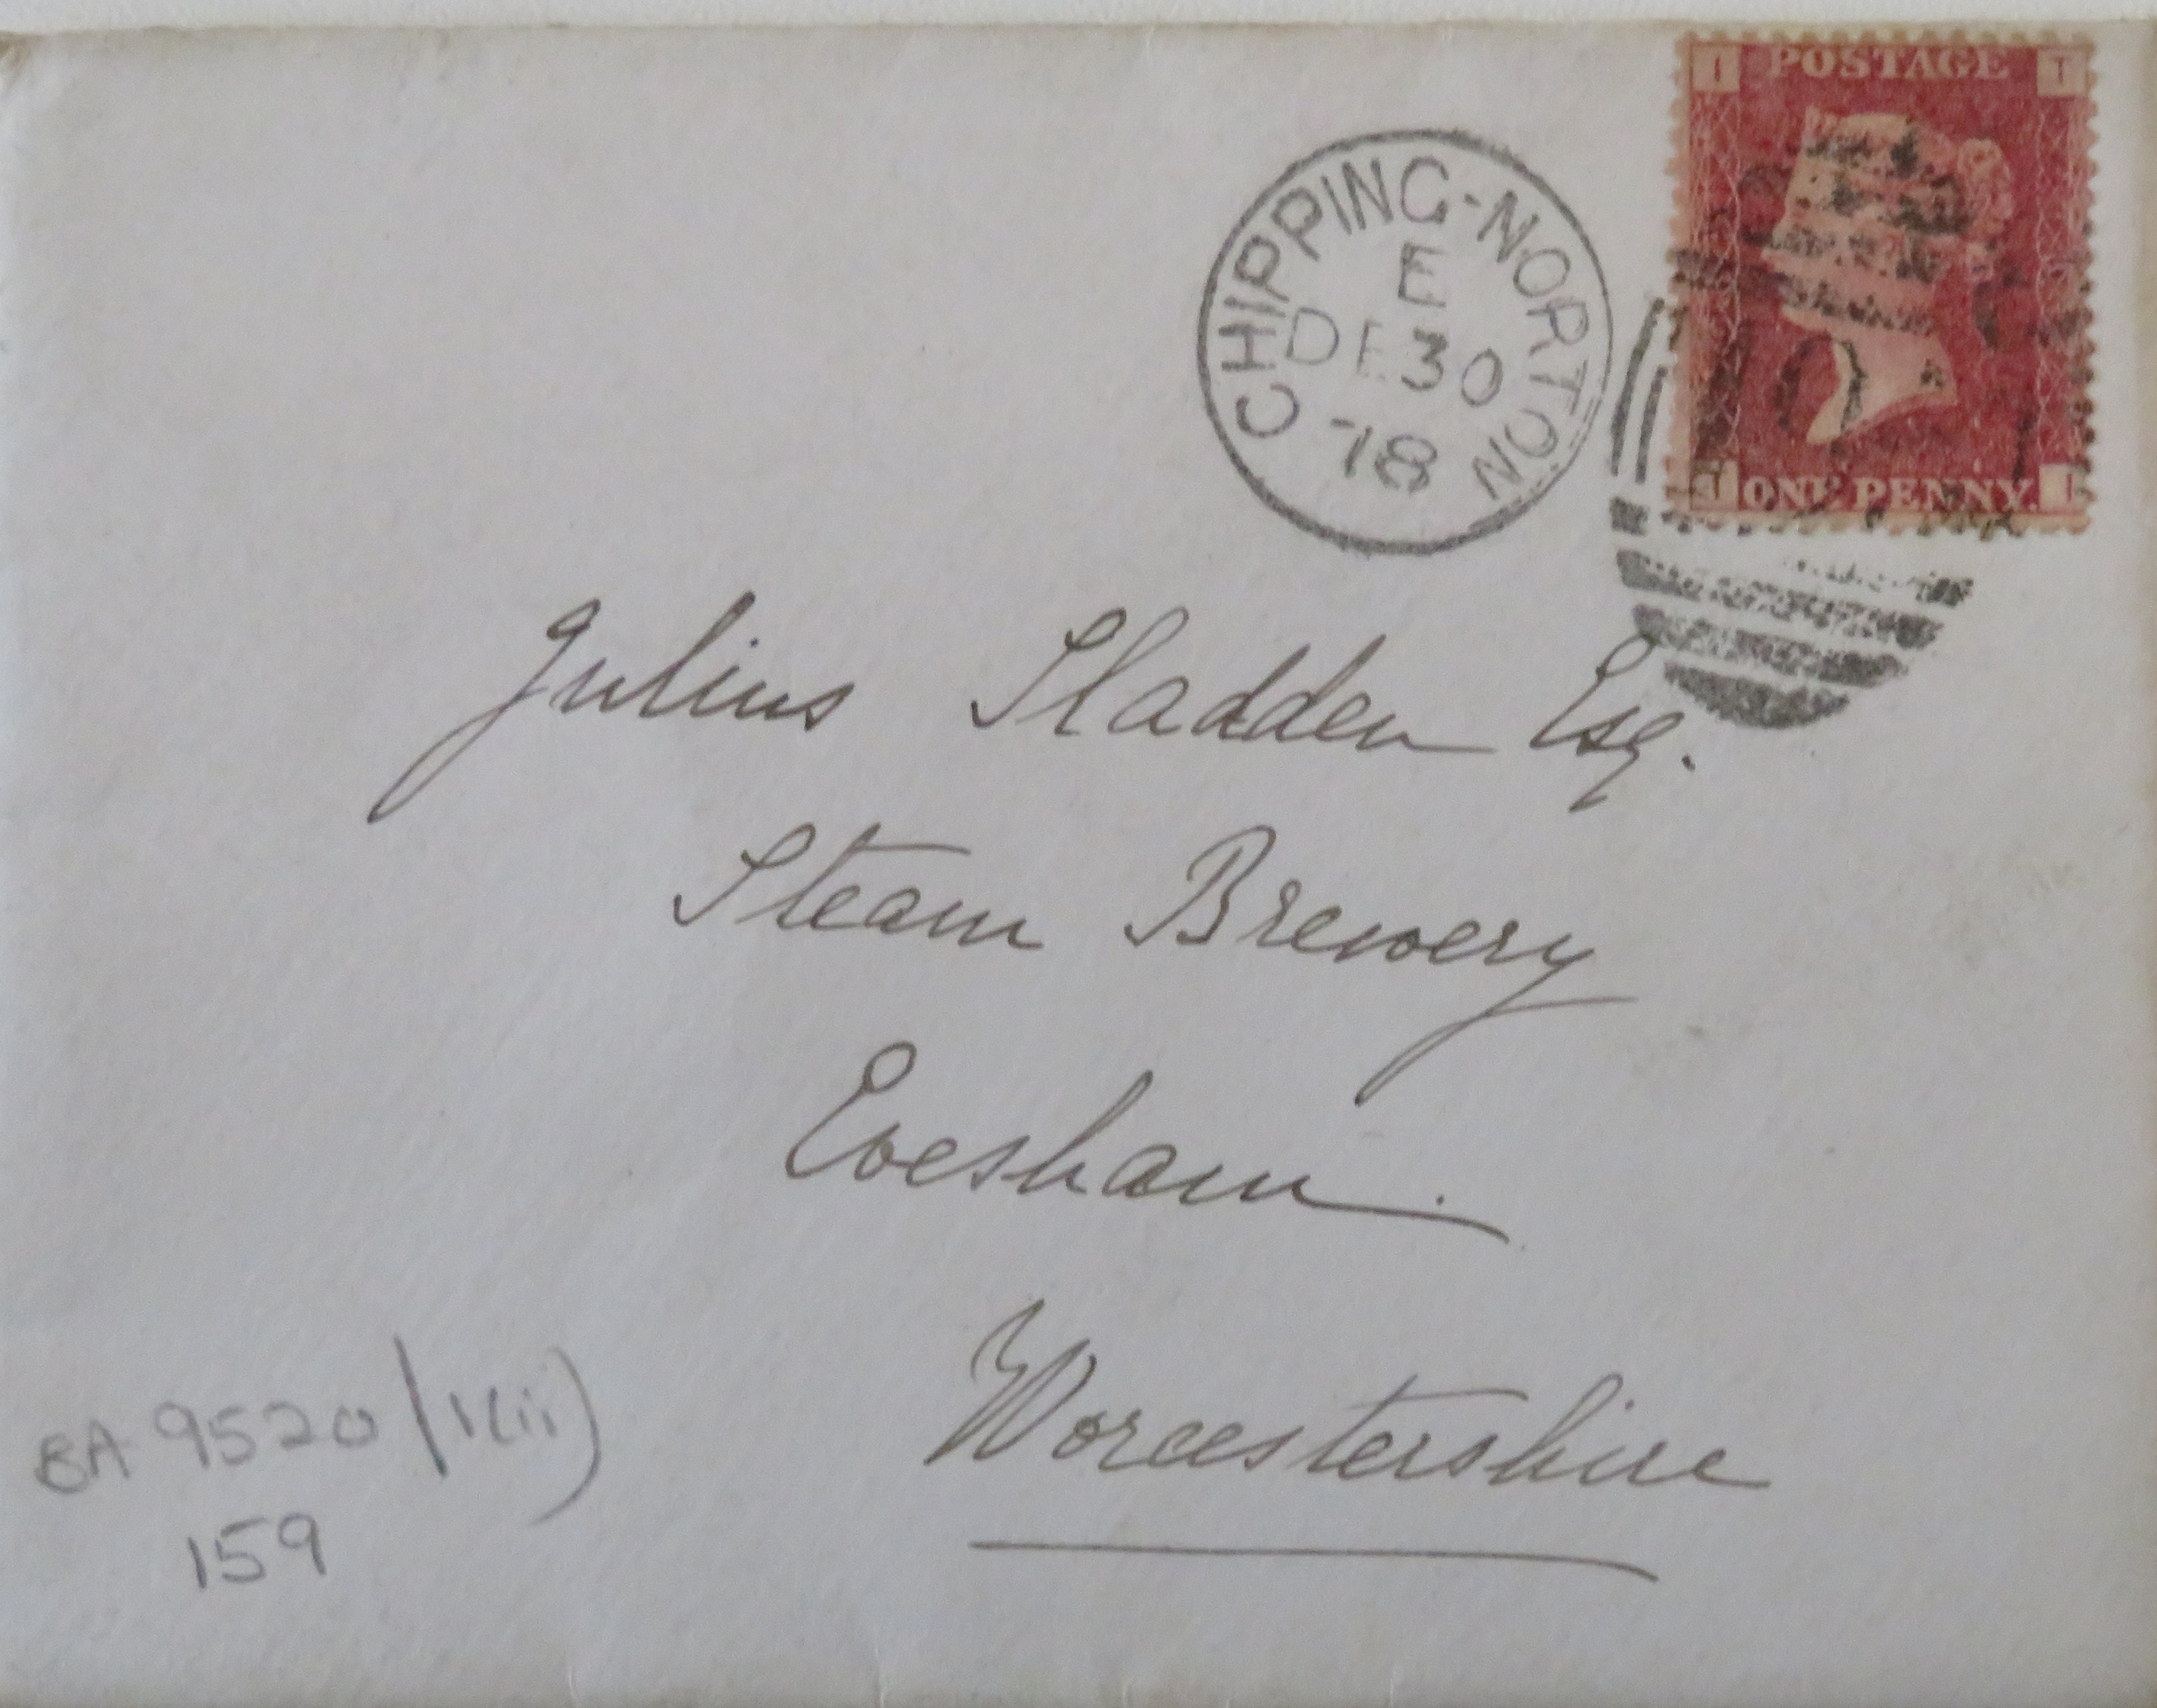 I POSTAGE I
CHIPPING-NORTON
E
DE 30
78
ONE PENNY.
Julius Sladden Esq.
Steam Brewery
Evesham.
Worcestershire
BA 9520/1(ii)
159